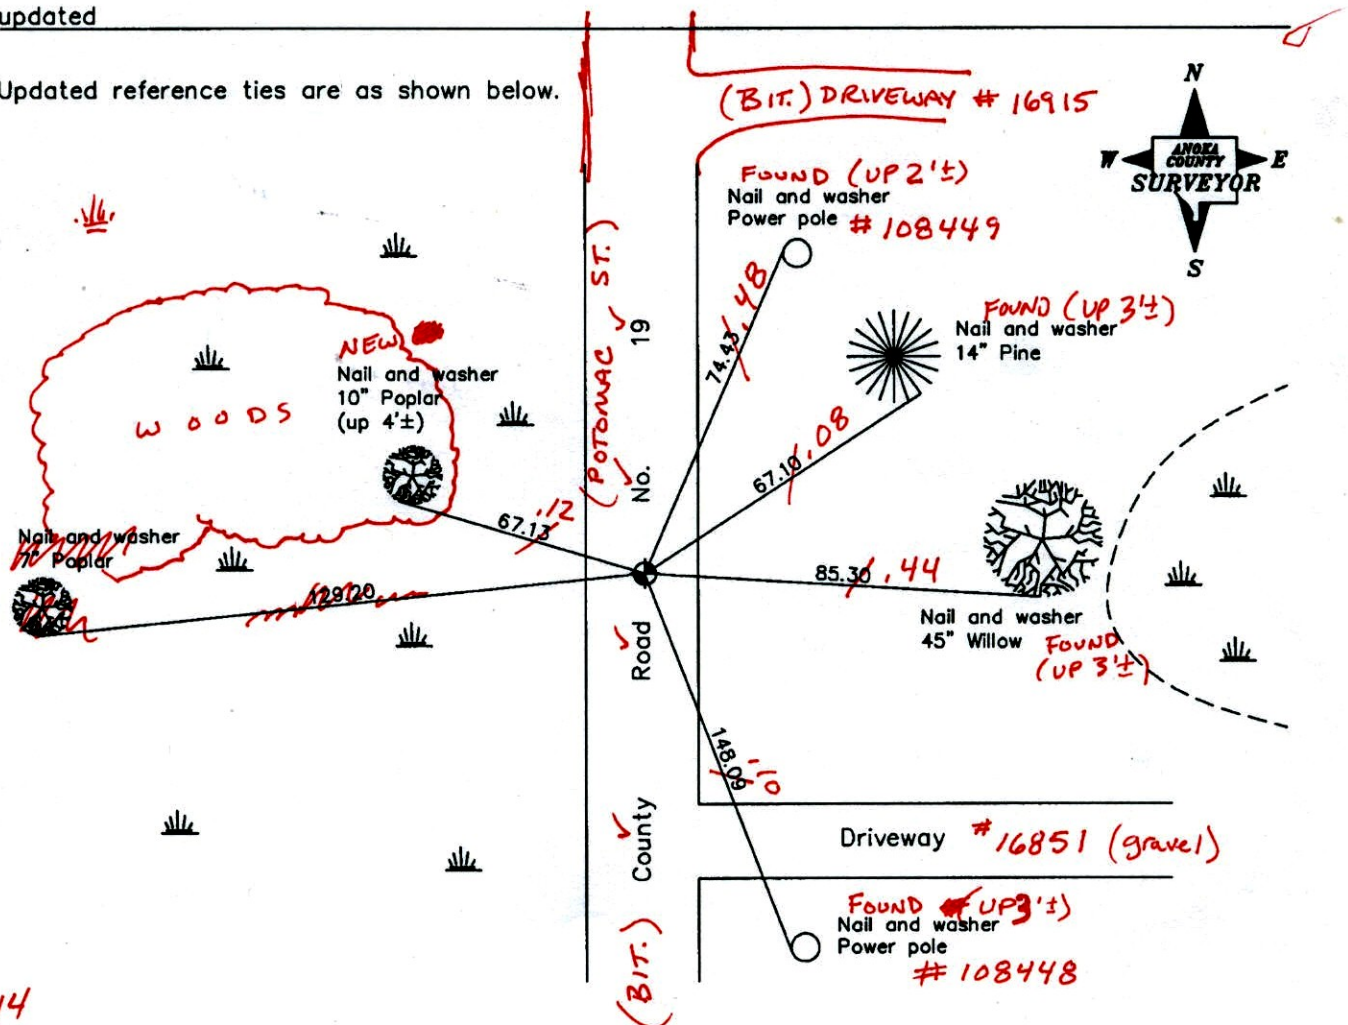 updated
Updated reference ties are as shown below.
(BIT.) DRIVEWAY # 16915
N
W
ANOKA
COUNTY
SURVEYOR
E
S
FOUND (UP 2'±)
Nail and washer
Power pole # 108449
74.43 .48
FOUND (UP 3'±)
Nail and washer
14" Pine
67.10 .08
NEW
Nail and washer
10" Poplar
(up 4'±)
WOODS
67.13 .12
Nail and washer
7" Poplar
129.20
85.30 .44
Nail and washer
45" Willow FOUND
(UP 3'±)
County Road No. 19
(POTOMAC ST.)
(BIT.)
148.09 .10
Driveway # 16851 (gravel)
FOUND (UP 3'±)
Nail and washer
Power pole
# 108448
14